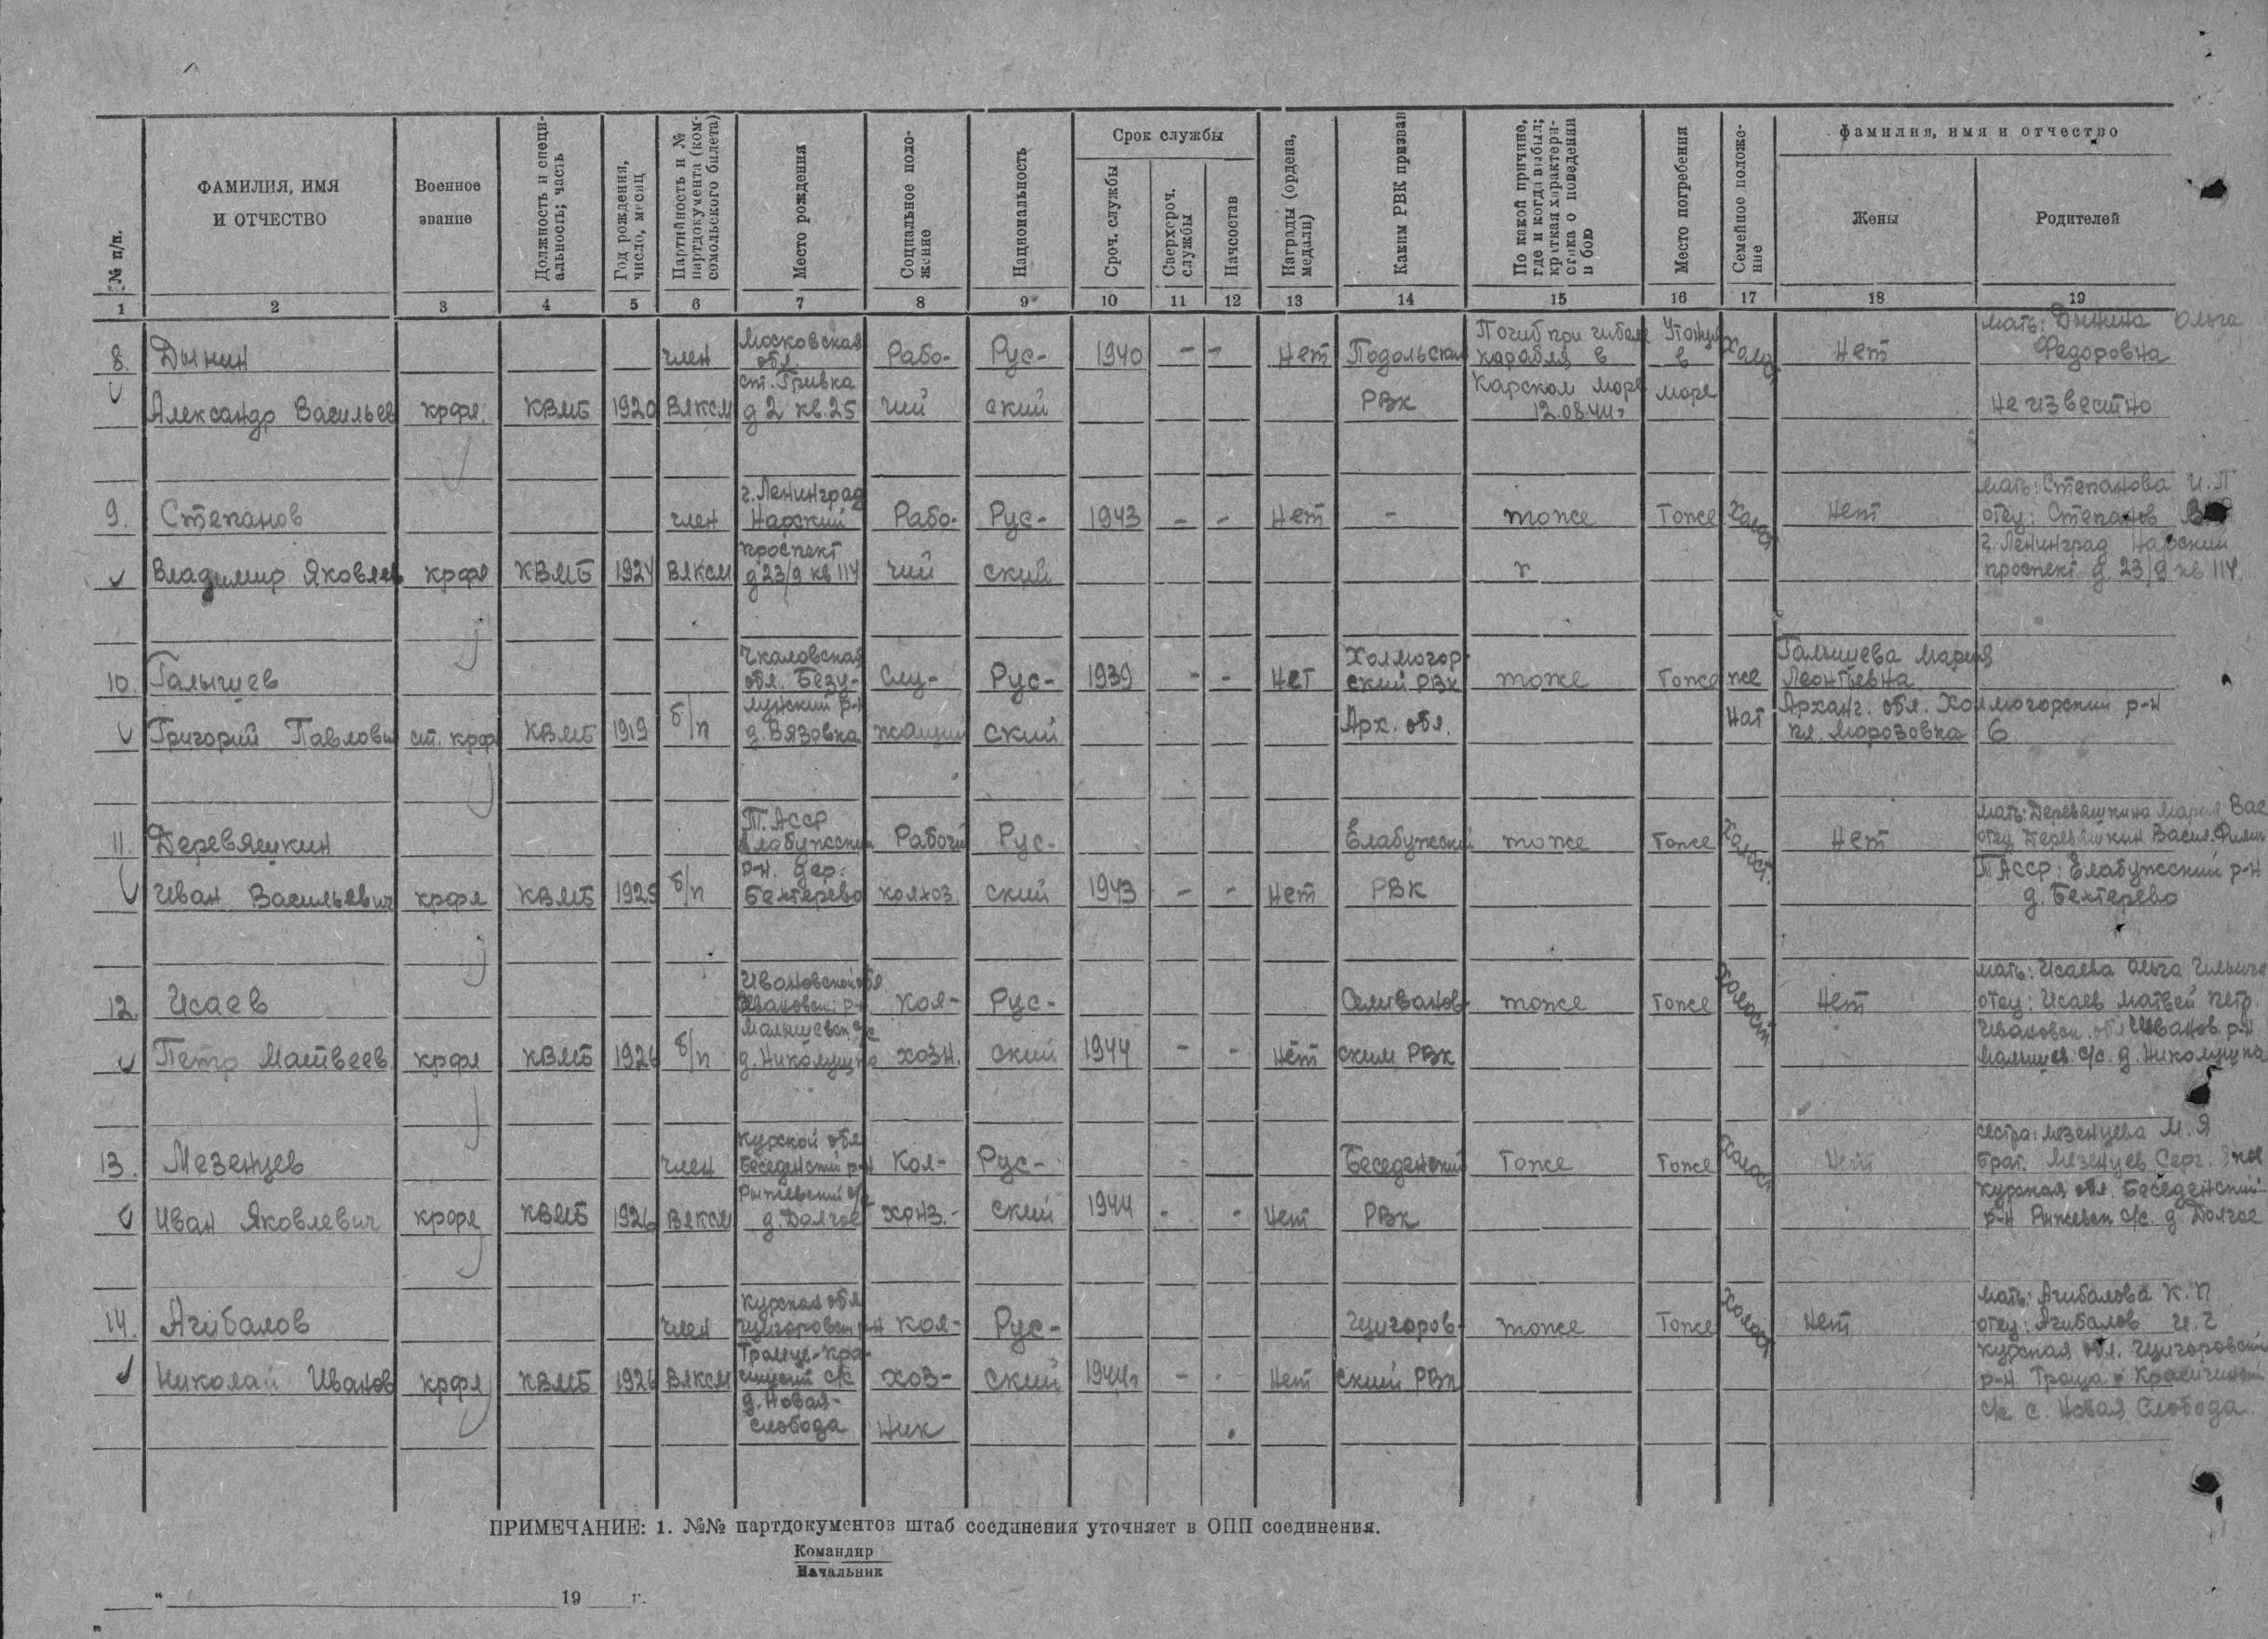 № п/п.
ФАМИЛИЯ, ИМЯ
И ОТЧЕСТВО
Военное
звание
Должность и специ-
альность; часть
Год рождения,
число, месяц
Партийность и №
партдокумента (ком-
сомольского билета)
Место рождения
Социальное поло-
жение
Национальность
Срок службы
Сроч. службы
Сверхсроч.
службы
Начсостав
Награды (ордена,
медали)
Каким РВК призван
По какой причине,
где и когда выбыл;
краткая характери-
стика о поведении
в бою
Место погребения
Семейное положе-
ние
фамилия, имя и отчество
Жены
Родителей
1 2 3 4 5 6 7 8 9 10 11 12 13 14 15 16 17 18 19
8. Дынин
Александр Васильев
крфл.
КВМБ
1920
член
ВЛКСМ
Московская
обл
ст. Гривка
д 2 кв. 25
Рабо-
чий
Рус-
ский
1940
- -
Нет
Подольским
РВК
Погиб при гибели
карабля в
Карском море
12.08.44г
в
море
Холост
Нет
мать: Дынина Ольга
Федоровна
неизвестно
9. Степанов
Владимир Яковлев
крфл
КВМБ
1924
член
ВЛКСМ
г. Ленинград
Нарский
проспект
д 23/9 кв 114
Рабо-
чий
Рус-
ский
1943
- -
Нет
-
тоже
Тоже
Холост
Нет
мать: Степанова И. П
отец: Степанов
г. Ленинград Нарский
проспект д. 23/9 кв 114.
10. Галышев
Григорий Павлович
ст. крфл
КВМБ
1919
б/п
Чкаловская
обл.
д. Вязовка
Слу-
жащий
Рус-
ский
1939
- -
Нет
Холмогор-
ский РВК
Арх. обл.
тоже
Тоже
же
нат
Галышева Мария
Леонтьевна
Арханг. обл. Холмогорский р-н
пл. Морозовка 6
11. Деревяшкин
Иван Васильевич
крфл
КВМБ
1925
б/п
Т. АССР
Елабужский
р-н. дер.
Бехтерево
Рабочий
колхоз.
Рус-
ский
1943
- -
Нет
Елабужский
РВК
тоже
Тоже
Холост.
Нет
мать: Деревяшкина Мария Вас
отец Деревяшкин Васил. Филип
ТАССР: Елабужский р-н
д. Бехтерево
12. Исаев
Петр Матвеев.
крфл
КВМБ
1926
б/п
Ивановской обл
Ивановск. р-
Малышевск. с/с
д. Николицына
Кол-
хозн.
Рус-
ский
1944
- -
Нет
Селиванов-
ским РВК
тоже
Тоже
Холост
Нет
мать: Исаева Ольга
отец: Исаев Матвей Петр
Ивановск. обл Иванов. р-н
Малышев. с/с. д. Николицына
13. Мезенцев
Иван Яковлевич
крфл
КВМБ
1926
член
ВЛКСМ
Курской обл
Беседенский р-н
Рыжевский с/с
д. Долгое
Кол-
хоз.-
Рус-
ский
1944
- -
Нет
Беседенский
РВК
Тоже
Тоже
Холост
Нет
сестра: Мезенцева М. Я
брат. Мезенцев Серг.
Курская обл. Беседенский
р-н Рыжевск с/с. д Долгое
14. Агибалов
Николай Иванов
крфл
КВМБ
1926
член
ВЛКСМ
Курская обл
Щигоровск р-н
д. Новая-
слобода
Кол-
хоз-
ник
Рус-
ский
1944г
- -
Нет
Щигоров-
ский РВК
тоже
Тоже
Холост
Нет
мать: Агибалова К. П
отец: Агибалов И. Г
Курская обл. Щигоровский
р-н
с/с. с. Новая Слобода
ПРИМЕЧАНИЕ: 1. №№ партдокументов штаб соединения уточняет в ОПП соединения.
Командир
Начальник
" 19 г.